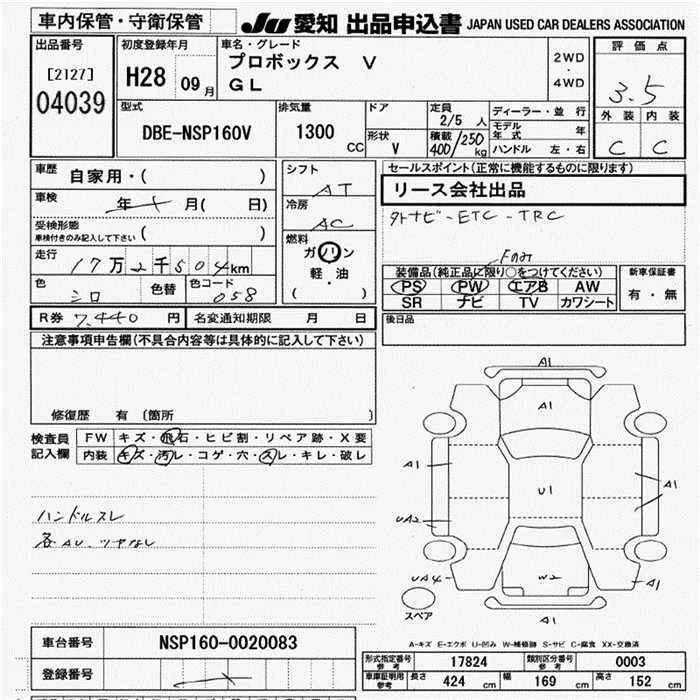 車内保管・守衛保管
JU 愛知 出品申込書 JAPAN USED CAR DEALERS ASSOCIATION
出品番号
[2127]
04039
初度登録年月
H28 09月
車名・グレード
プロボックス V
GL
2WD
・
4WD
評価点
3.5
外装 内装
C C
型式
DBE-NSP160V
排気量
1300
CC
ドア
形状
V
定員
2/5 人
積載
400/250 kg
ディーラー・並行
モデル年式 年
ハンドル 左・右
車歴
自家用・( )
車検
年 月( 日)
受検形態
車検付きのみ記入して下さい ( )
走行
17万2千504km
色
シロ
色替
色コード
058
シフト
AT
冷房
AC
燃料
ガソリン
軽・油
( )
セールスポイント(正常に機能するものに限ります)
リース会社出品
外ナビ-ETC-TRC
Fのみ
装備品(純正品に限り○をつけてください)
PS PW エアB AW
SR ナビ TV カワシート
新車保証書
有・無
R券 7,440 円
名変通知期限 月 日
後日品
注意事項申告欄(不具合内容等は具体的に記入して下さい)
修復歴 有 〔箇所 〕
検査員
記入欄
FW キズ・飛石・ヒビ割・リペア跡・X要
内装 キズ・汚レ・コゲ・穴・スレ・キレ・破レ
ハンドルスレ
各AU、ツヤなし
A1
A1
A1
U1
A1
UA2
UA4
W2
A1
A1
スペア
A-キズ E-エクボ U-凹み W-補修跡 S-サビ C-腐食 XX-交換済
車台番号
NSP160-0020083
登録番号
型式指定番号
参考
17824
類別区分番号
参考
0003
車庫証明用
参考
長さ 424 cm
幅 169 cm
高さ 152 cm